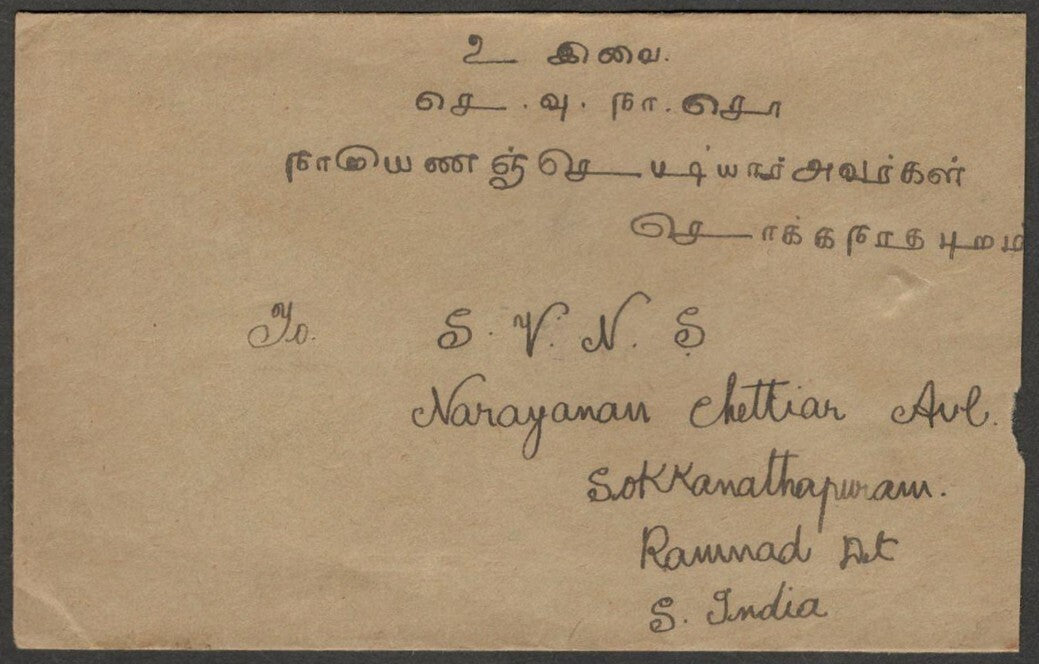 உ இவை.
செ. வு. நா. சொ
நாமயெணஞ்செட்டியார் அவர்கள்
சொக்கநாதபுறம்
To. S. V. N. S
Narayanan Chettiar Avl.
Sokkanathapuram.
Ramnad Dt
S. India